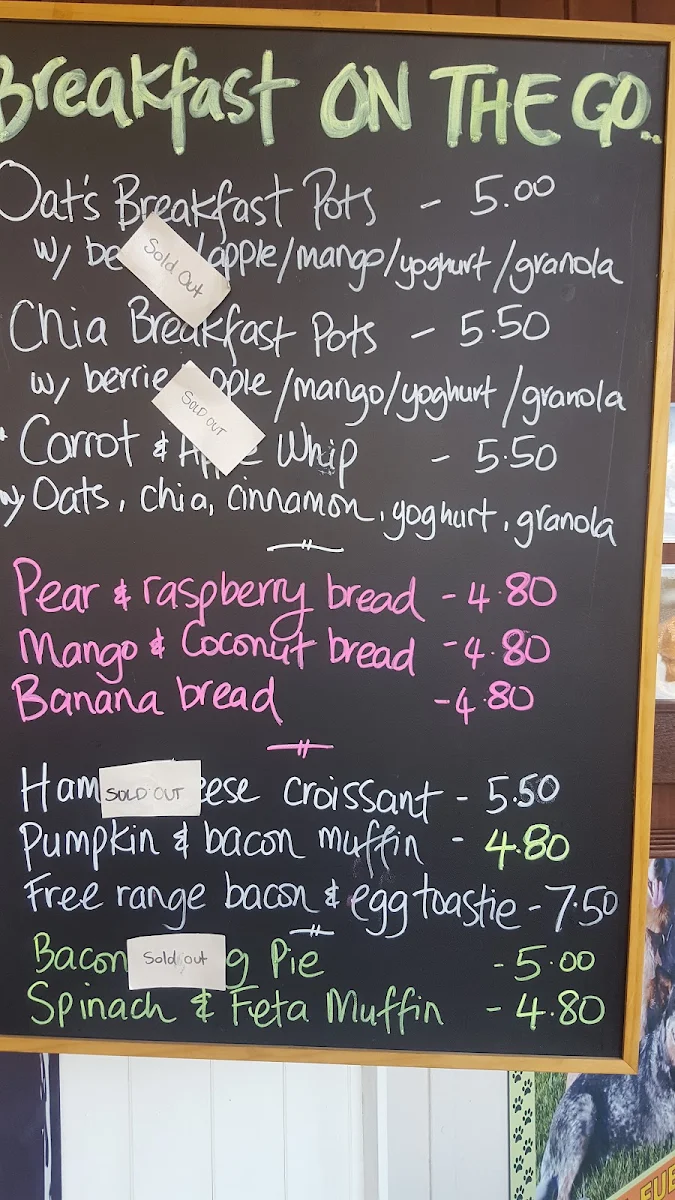 Breakfast ON THE GO...
Oat's Breakfast Pots - 5.00
w/ be /apple/mango/yoghurt/granola
Sold Out
Chia Breakfast Pots - 5.50
w/ berrie apple/mango/yoghurt/granola
SOLD OUT
* Carrot & Apple Whip - 5.50
w/ Oats, chia, cinnamon, yoghurt, granola
Pear & raspberry bread - 4.80
Mango & Coconut bread - 4.80
Banana bread - 4.80
Ham eese croissant - 5.50
SOLD OUT
Pumpkin & bacon muffin - 4.80
Free range bacon & egg toastie - 7.50
Bacon g Pie - 5.00
Sold out
Spinach & Feta Muffin - 4.80